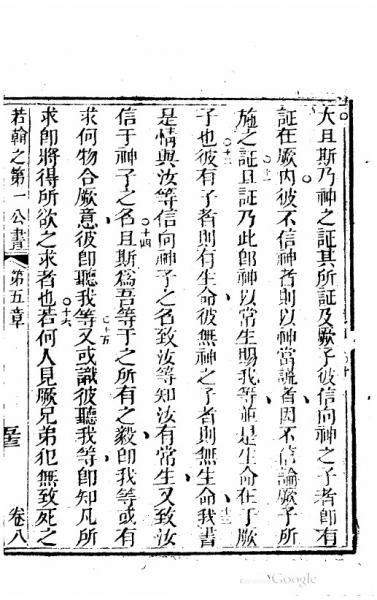 大且斯乃神之証其所証及厥子彼信向神之子者即有
証在厥内彼不信神者則以神當謊者因不信論厥子所
施之証且証乃此即神以常生賜我等並是生命在于厥
子也彼有子者則有生命彼無神之子者則無生命我書
是情與汝等信向神子之名致汝等知汝有常生又致汝
信于神子之名且斯為吾等于之所有之毅即我等或有
求何物合厥意彼即聽我等又或識彼聽我等即知凡所
求即將得所欲之求者也若何人見厥兄弟犯無致死之
若翰之第一公書 第五章 卷八
十一
十二
十三
十四
十五
十六
Google